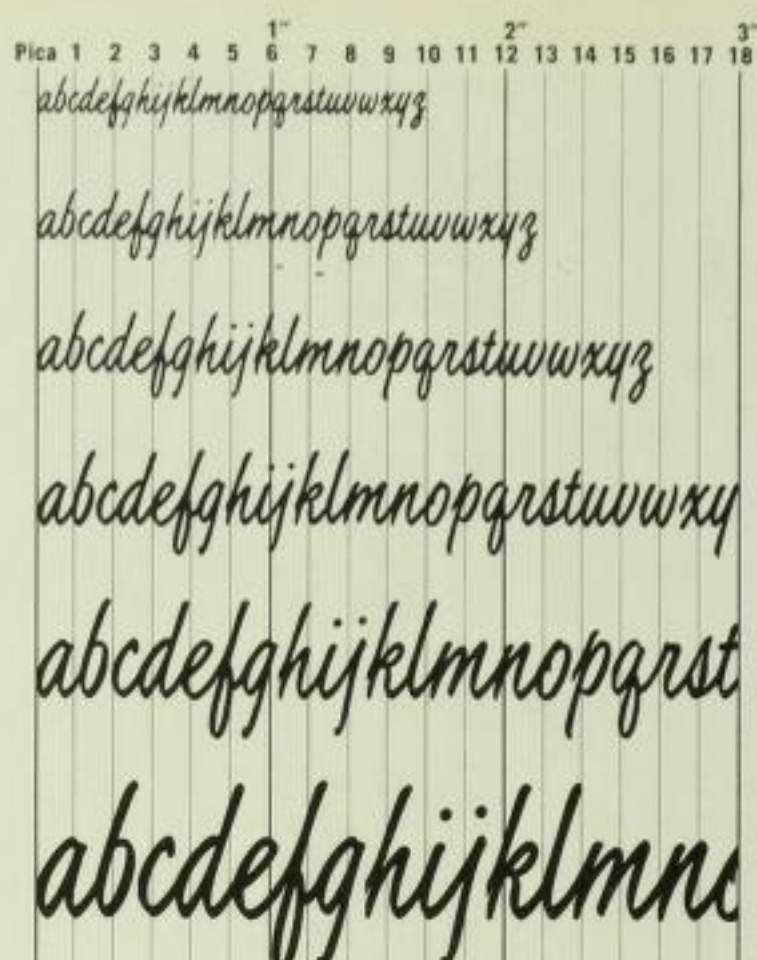 1" 2" 3"
Pica 1 2 3 4 5 6 7 8 9 10 11 12 13 14 15 16 17 18
abcdefghijklmnopqrstuvwxyz
abcdefghijklmnopqrstuvwxyz
abcdefghijklmnopqrstuvwxyz
abcdefghijklmnopqrstuvwxy
abcdefghijklmnopqrst
abcdefghijklmno